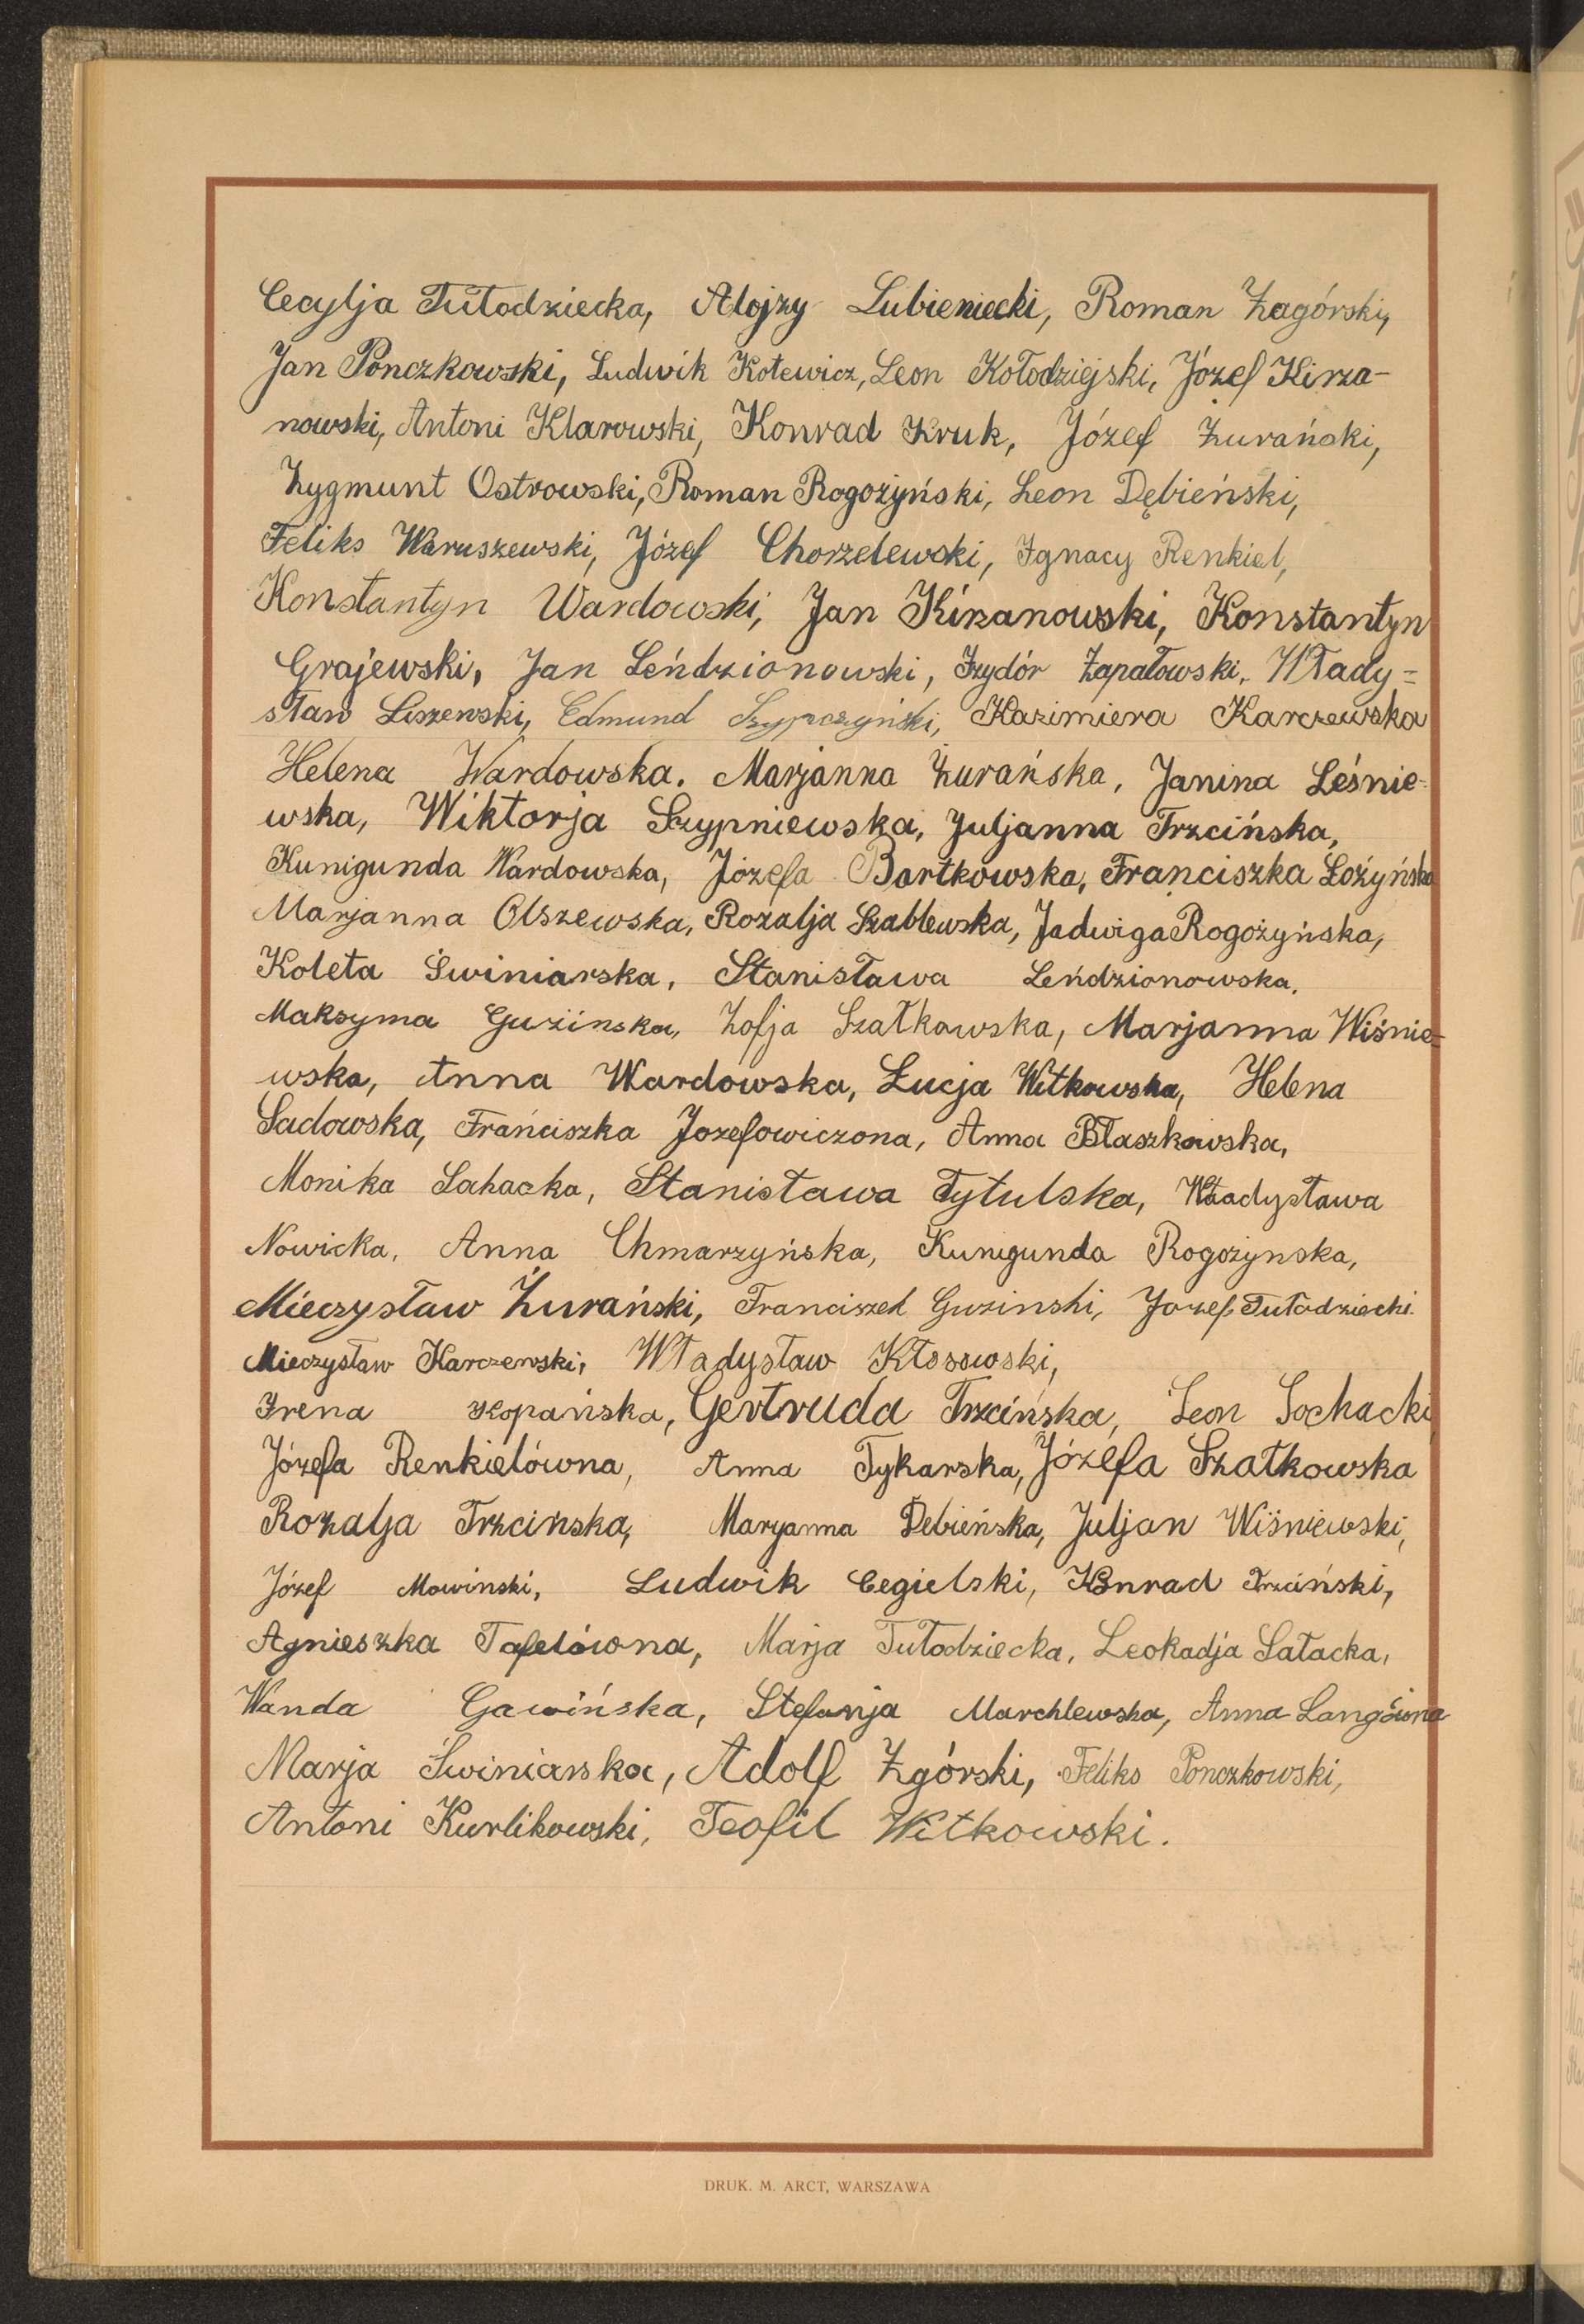 Cecylja Tułodziecka, Alojzy Lubieniecki, Roman Zagórski,
Jan Ponczkowski, Ludwik Kotewicz, Leon Kołodziejski, Józef Kirza-
nowski, Antoni Klarowski, Konrad Kruk, Józef Żurański,
Zygmunt Ostrowski, Roman Rogożyński, Leon Dębieński,
Feliks Waruszewski, Józef Chorzelewski, Ignacy Renkiel,
Konstantyn Wardowski, Jan Kirzanowski, Konstantyn
Grajewski, Jan Leńdzionowski, Izydór Zapałowski, Włady=
sław Liszewski, Edmund Szypczyński, Kazimiera Karczewska
Helena Wardowska. Marjanna Żurańska, Janina Leśnie-
wska, Wiktorja Szypniewska, Juljanna Trzcińska,
Kunigunda Wardowska, Józefa Bartkowska, Franciszka Łożyńska
Marjanna Olszewska, Rozalja Szablewska, Jadwiga Rogożyńska,
Koleta Świniarska, Stanisława Leńdzionowska.
Maksyma Guzińska, Zofja Szatkowska, Marjanna Wiśnie=
wska, Anna Wardowska, Łucja Witkowska, Helena
Sadowska, Franciszka Jozefowiczona, Anna Błaszkowska,
Monika Sahacka, Stanisława Tytulska, Władysława
Nowicka, Anna Chmarzyńska, Kunegunda Rogożynska,
Mieczysław Żurański, Franciszek Guzinski, Jozef Tułodziecki.
Mieczysław Karczewski, Władysław Kłossowski,
Irena Kopańska, Gertruda Trzcińska, Leon Sochacki
Józefa Renkielówna, Anna Tykarska, Józefa Szatkowska
Rozalja Trzcińska, Maryanna Dębieńska, Juljan Wiśniewski,
Józef Mowinski, Ludwik Cegielski, Konrad Trzciński,
Agnieszka Tafelówna, Marja Tułodziecka, Leokadja Sałacka,
Wanda Gawińska, Stefanja Marchlewska, Anna Langówna
Marja Świniarska, Adolf Zgórski, Feliks Ponczkowski,
Antoni Kurlikowski, Teofil Witkowski.
DRUK. M. ARCT, WARSZAWA